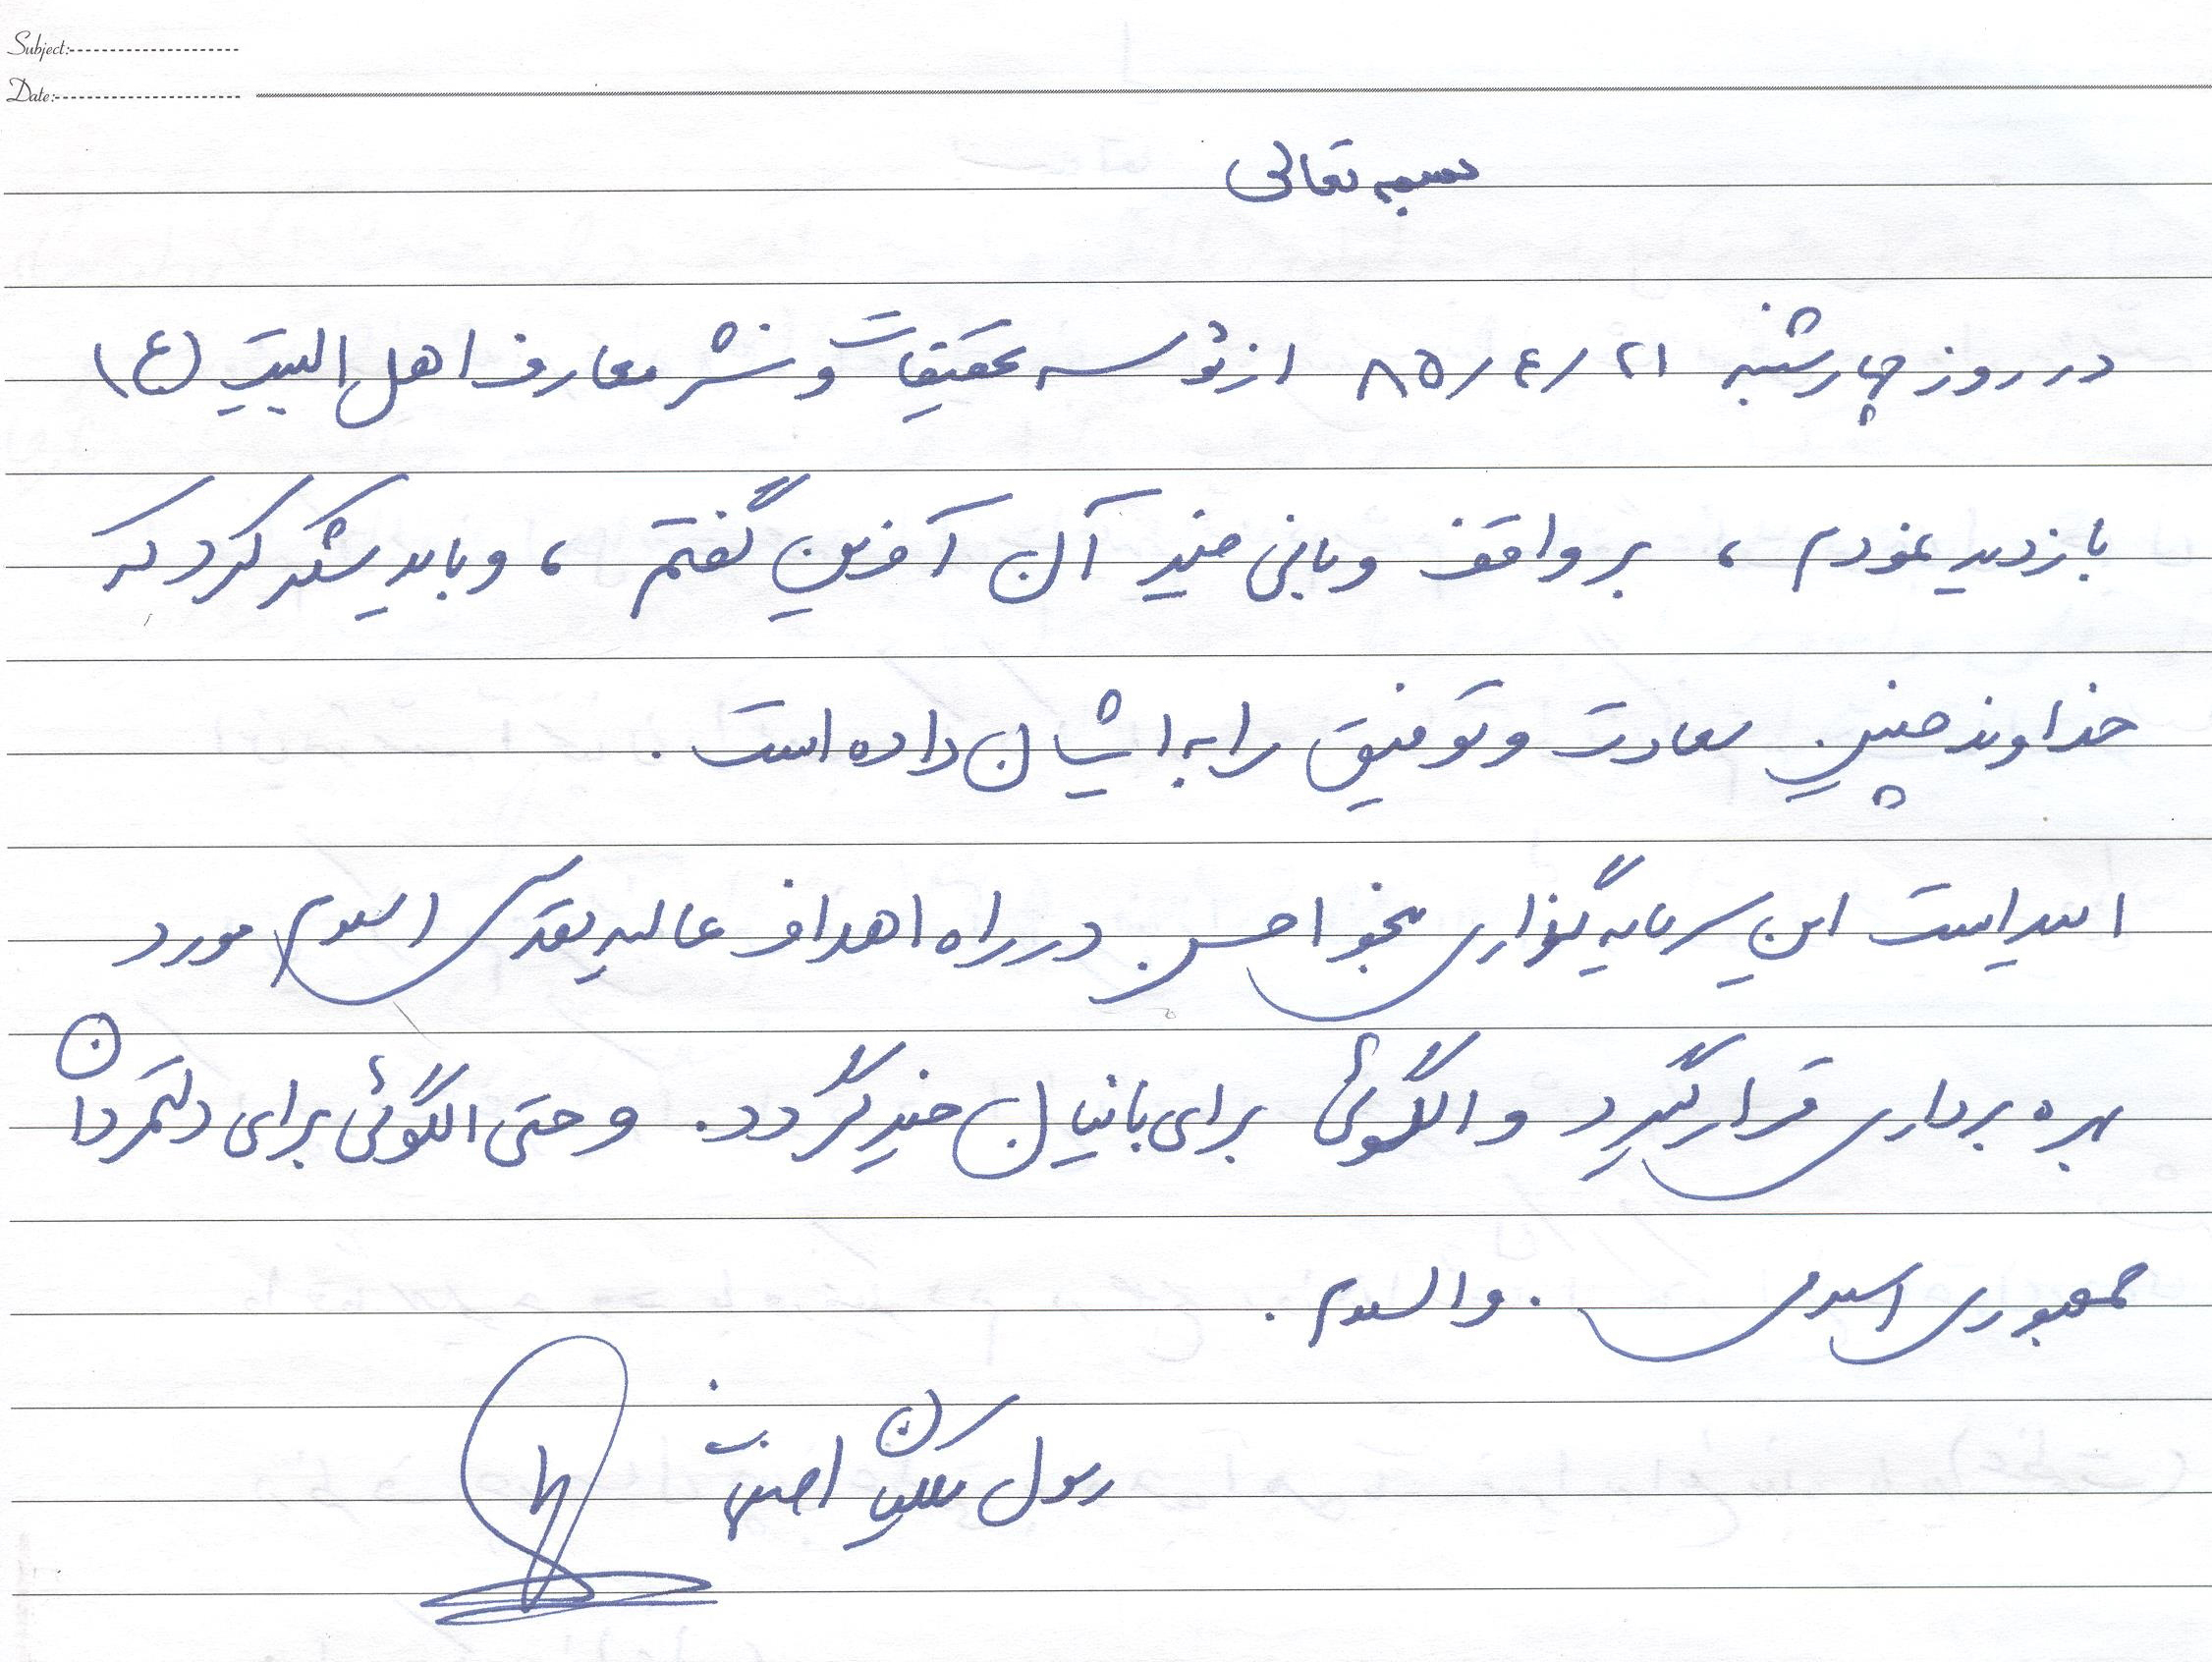 Subject:
Date:
بسمه تعالی
در روز چهارشنبه ۸۵/۴/۲۱ از مؤسسه تحقیقات و نشر معارف اهل البیت (ع)
بازدید نمودم ، بر واقف و بانی خیر آن آفرین گفتم ، و باید شکر کرد که
خداوند چنین سعادت و توفیق را به ایشان داده است .
امید است این سرمایه گذاری بنحو احسن در راه اهداف عالیه مقدس اسلام مورد
بهره برداری قرار گیرد و الگوئی برای بانیان خیر گردد. و حتی الگوئی برای دولتمردان
جمهوری اسلامی . والسلام .
رسول